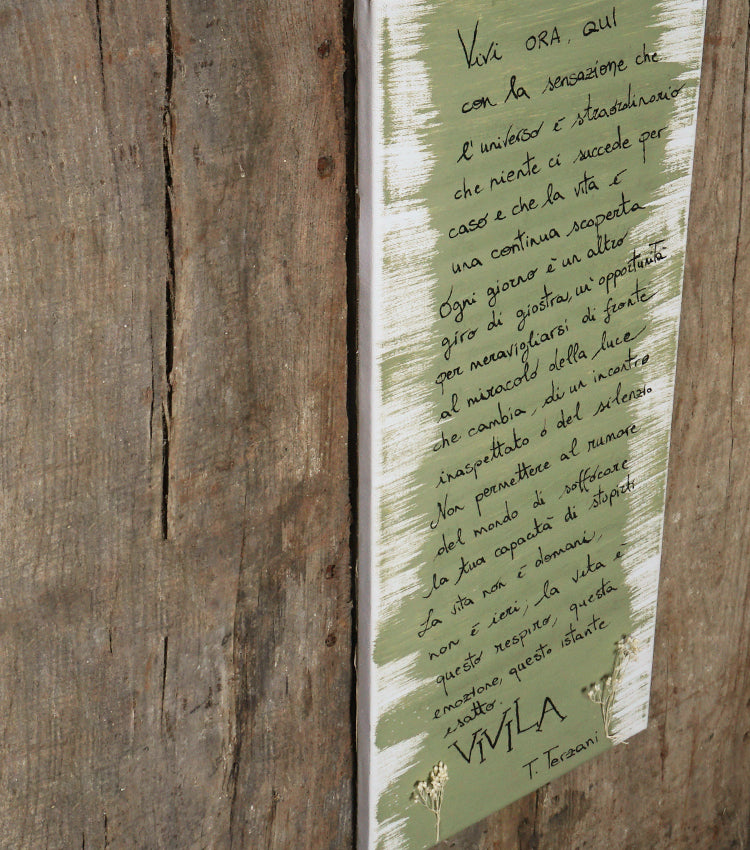 Vivi ORA, QUI
con la sensazione che
l'universo è straordinario
che niente ci succede per
caso e che la vita è
una continua scoperta
Ogni giorno è un altro
giro di giostra, un' opportunità
per meravigliarsi di fronte
al miracolo della luce
che cambia, di un incontro
inaspettato o del silenzio
Non permettere al rumore
del mondo di soffocare
la tua capacità di stupirti
La vita non è domani,
non è ieri; la vita è
questo respiro, questa
emozione, questo istante
esatto.
VIVILA
T. Terzani